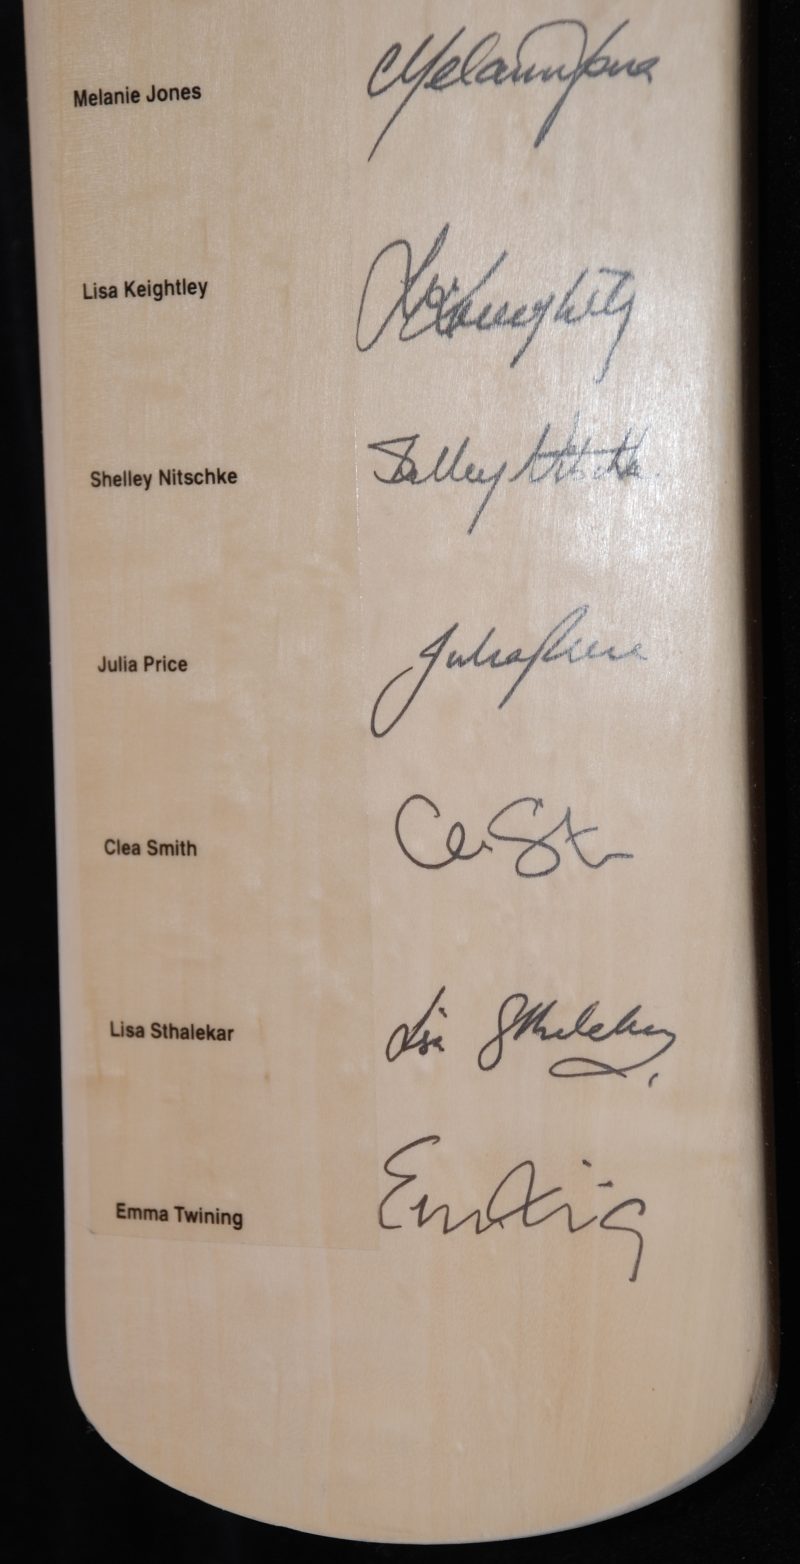 Melanie Jones Melanie Jones
Lisa Keightley Lisa Keightley
Shelley Nitschke Shelley Nitschke
Julia Price Julia Price
Clea Smith
Lisa Sthalekar Lisa Sthalekar
Emma Twining